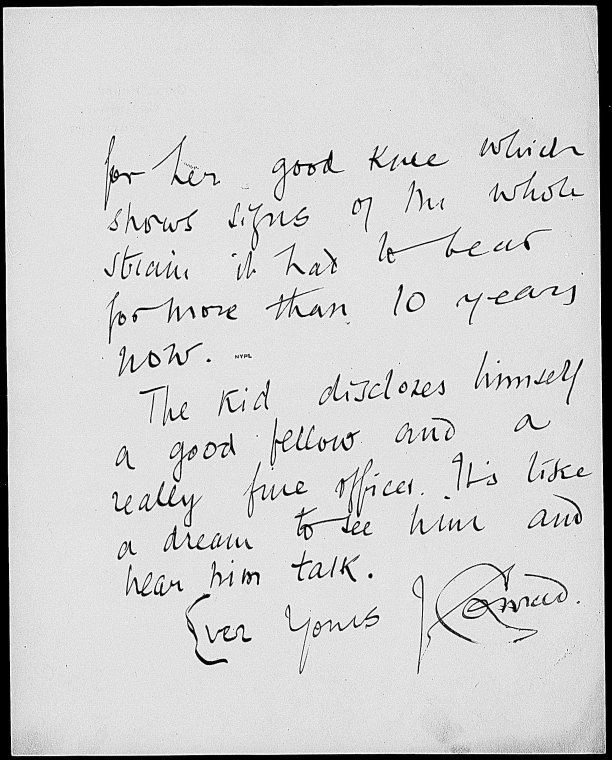 for her good knee which
shows signs of the whole
strain it had to bear
for more than 10 years
now. NYPL
The kid discloses himself
a good fellow and a
really fine officer. It's like
a dream to see him and
hear him talk.
Ever Yours J. Conrad.